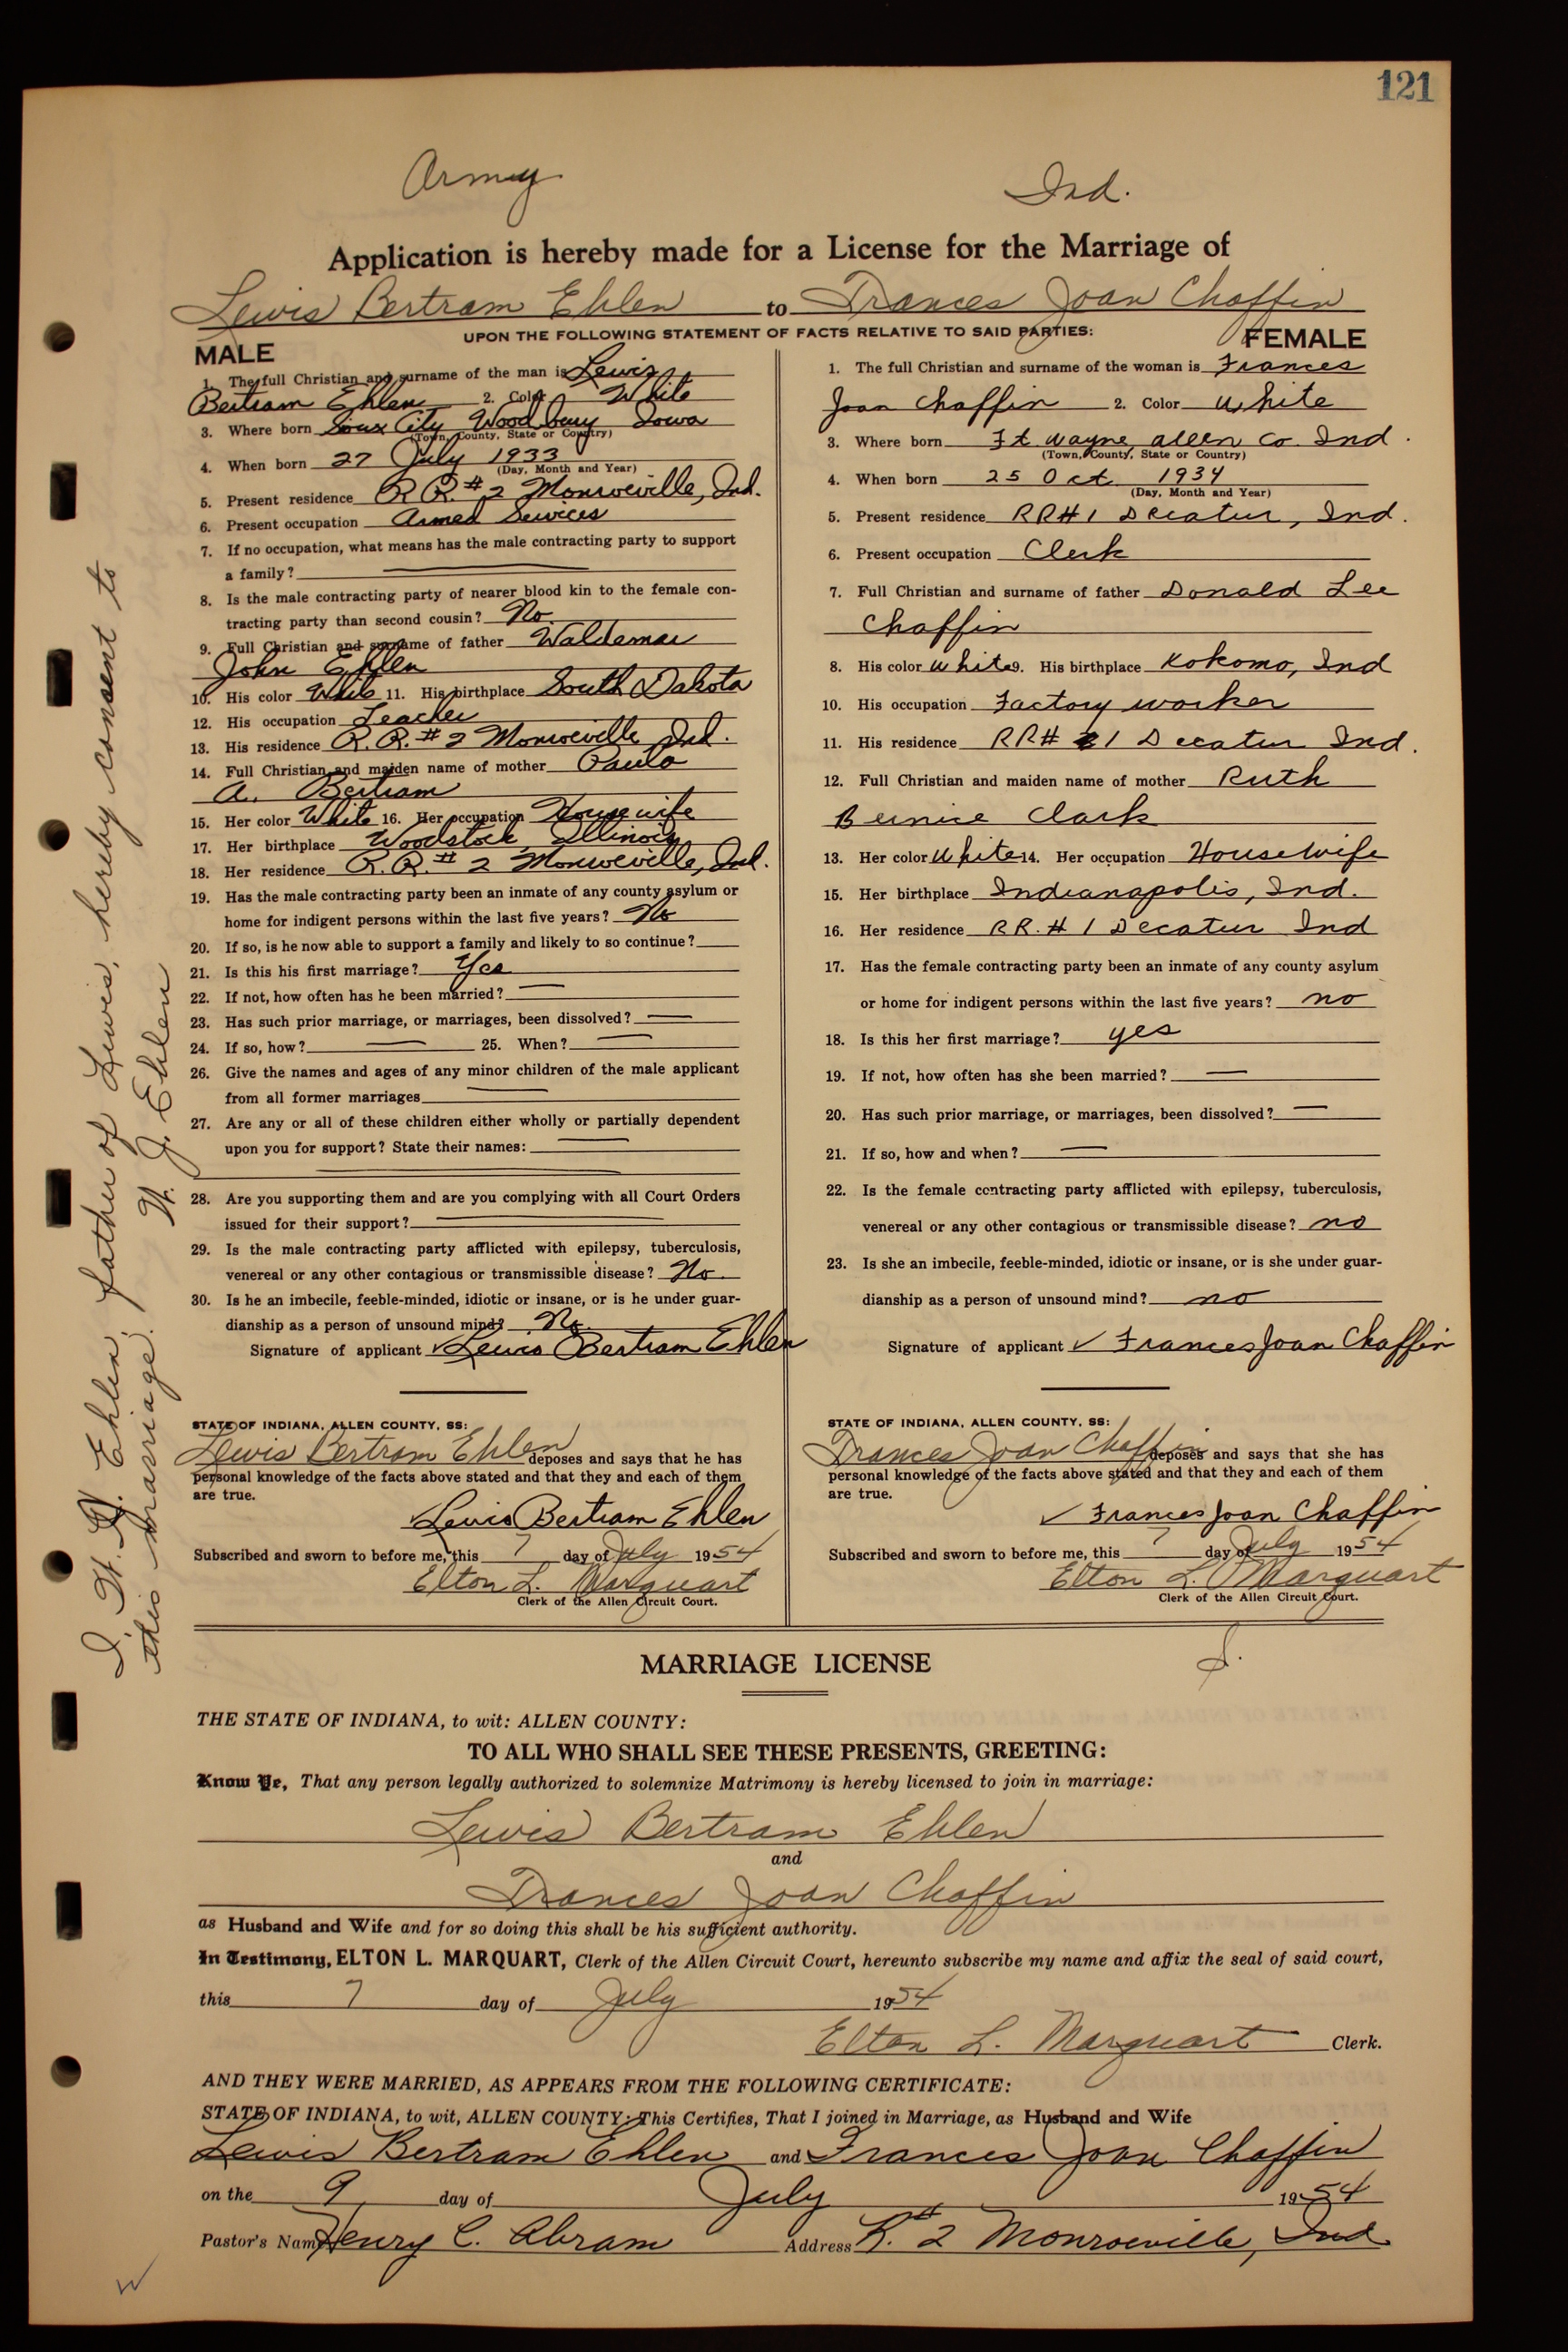 121
Army
Ind.
Application is hereby made for a License for the Marriage of
Lewis Bertram Ehlen to Frances Joan Chaffin
UPON THE FOLLOWING STATEMENT OF FACTS RELATIVE TO SAID PARTIES:
MALE
1. The full Christian and surname of the man is Lewis
Bertram Ehlen 2. Color White
3. Where born Sioux City Woodbury Iowa
(Town, County, State or Country)
4. When born 27 July 1933
(Day, Month and Year)
5. Present residence R R. # 2 Monroeville, Ind.
6. Present occupation Armed Services
7. If no occupation, what means has the male contracting party to support
a family?
8. Is the male contracting party of nearer blood kin to the female con-
tracting party than second cousin? No.
9. Full Christian and surname of father Waldemar
John Ehlen
10. His color White 11. His birthplace South Dakota
12. His occupation Teacher
13. His residence R. R. # 2 Monroeville, Ind.
14. Full Christian and maiden name of mother Paula
A. Bertram
15. Her color White 16. Her occupation Housewife
17. Her birthplace Woodstock, Illinois
18. Her residence R. R. # 2 Monroeville, Ind.
19. Has the male contracting party been an inmate of any county asylum or
home for indigent persons within the last five years? No
20. If so, is he now able to support a family and likely to so continue?
21. Is this his first marriage? Yes
22. If not, how often has he been married? —
23. Has such prior marriage, or marriages, been dissolved? —
24. If so, how? — 25. When? —
26. Give the names and ages of any minor children of the male applicant
from all former marriages —
27. Are any or all of these children either wholly or partially dependent
upon you for support? State their names: —
28. Are you supporting them and are you complying with all Court Orders
issued for their support? —
29. Is the male contracting party afflicted with epilepsy, tuberculosis,
venereal or any other contagious or transmissible disease? No.
30. Is he an imbecile, feeble-minded, idiotic or insane, or is he under guar-
dianship as a person of unsound mind? No.
Signature of applicant ✓ Lewis Bertram Ehlen
STATE OF INDIANA, ALLEN COUNTY, SS:
Lewis Bertram Ehlen deposes and says that he has
personal knowledge of the facts above stated and that they and each of them
are true.
✓ Lewis Bertram Ehlen
Subscribed and sworn to before me, this 7 day of July 1954
Elton L. Marquart
Clerk of the Allen Circuit Court.
FEMALE
1. The full Christian and surname of the woman is Frances
Joan Chaffin 2. Color White
3. Where born Ft Wayne, Allen Co. Ind.
(Town, County, State or Country)
4. When born 25 Oct 1934
(Day, Month and Year)
5. Present residence RR#1 Decatur, Ind.
6. Present occupation Clerk
7. Full Christian and surname of father Donald Lee
Chaffin
8. His color White 9. His birthplace Kokomo, Ind
10. His occupation Factory worker
11. His residence RR# 1 Decatur Ind.
12. Full Christian and maiden name of mother Ruth
Bernice Clark
13. Her color White 14. Her occupation Housewife
15. Her birthplace Indianapolis, Ind.
16. Her residence RR. # 1 Decatur Ind
17. Has the female contracting party been an inmate of any county asylum
or home for indigent persons within the last five years? no
18. Is this her first marriage? yes
19. If not, how often has she been married? —
20. Has such prior marriage, or marriages, been dissolved? —
21. If so, how and when? —
22. Is the female contracting party afflicted with epilepsy, tuberculosis,
venereal or any other contagious or transmissible disease? no
23. Is she an imbecile, feeble-minded, idiotic or insane, or is she under guar-
dianship as a person of unsound mind? no
Signature of applicant ✓ Frances Joan Chaffin
STATE OF INDIANA, ALLEN COUNTY, SS:
Frances Joan Chaffin deposes and says that she has
personal knowledge of the facts above stated and that they and each of them
are true.
✓ Frances Joan Chaffin
Subscribed and sworn to before me, this 7 day of July 1954
Elton L. Marquart
Clerk of the Allen Circuit Court.
I, W. J. Ehlen, father of Lewis, hereby consent to
this marriage. W. J. Ehlen
MARRIAGE LICENSE
THE STATE OF INDIANA, to wit: ALLEN COUNTY:
TO ALL WHO SHALL SEE THESE PRESENTS, GREETING:
Know Ye, That any person legally authorized to solemnize Matrimony is hereby licensed to join in marriage:
Lewis Bertram Ehlen
and
Frances Joan Chaffin
as Husband and Wife and for so doing this shall be his sufficient authority.
In Testimony, ELTON L. MARQUART, Clerk of the Allen Circuit Court, hereunto subscribe my name and affix the seal of said court,
this 7 day of July 1954
Elton L. Marquart Clerk.
AND THEY WERE MARRIED, AS APPEARS FROM THE FOLLOWING CERTIFICATE:
STATE OF INDIANA, to wit, ALLEN COUNTY: This Certifies, That I joined in Marriage, as Husband and Wife
Lewis Bertram Ehlen and Frances Joan Chaffin
on the 9 day of July 1954
Pastor's Name Henry C. Abram Address R. # 2 Monroeville, Ind